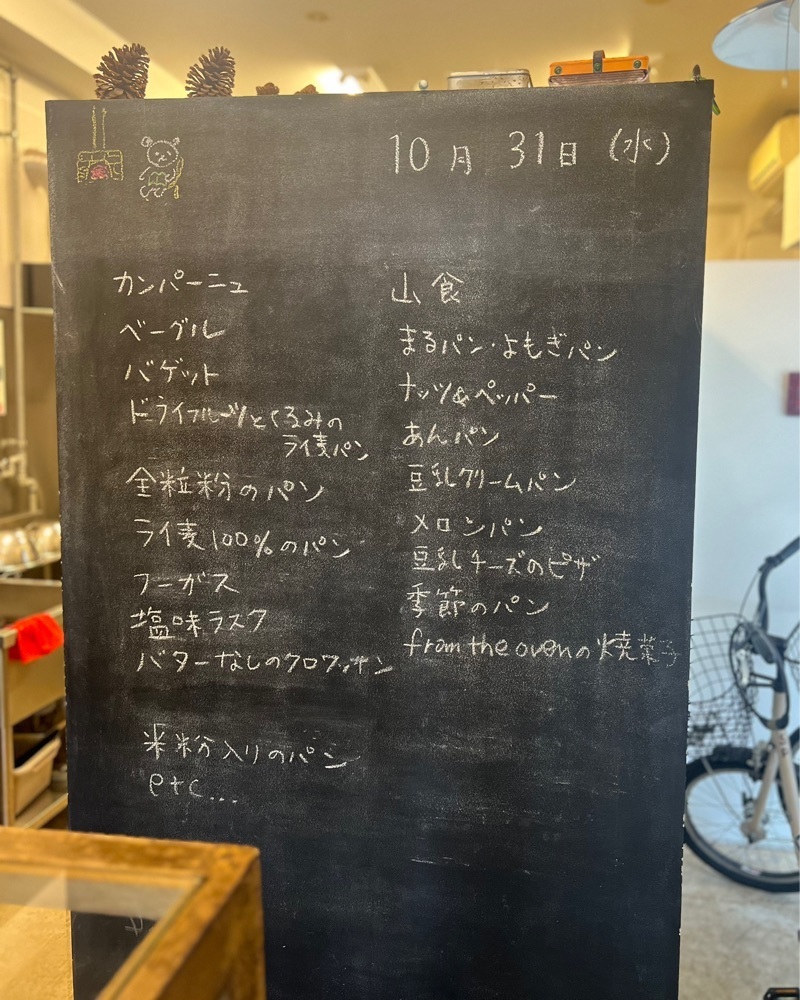 10月 31日 (水)
カンパーニュ
ベーグル
バゲット
ドライフルーツとくるみの
ライ麦パン
全粒粉のパン
ライ麦100%のパン
フーガス
塩味ラスク
バターなしのクロワッサン
米粉入りのパン
etc...
山食
まるパン・よもぎパン
ナッツ&ペッパー
あんパン
豆乳クリームパン
メロンパン
豆乳チーズのピザ
季節のパン
from the ovenの焼菓子